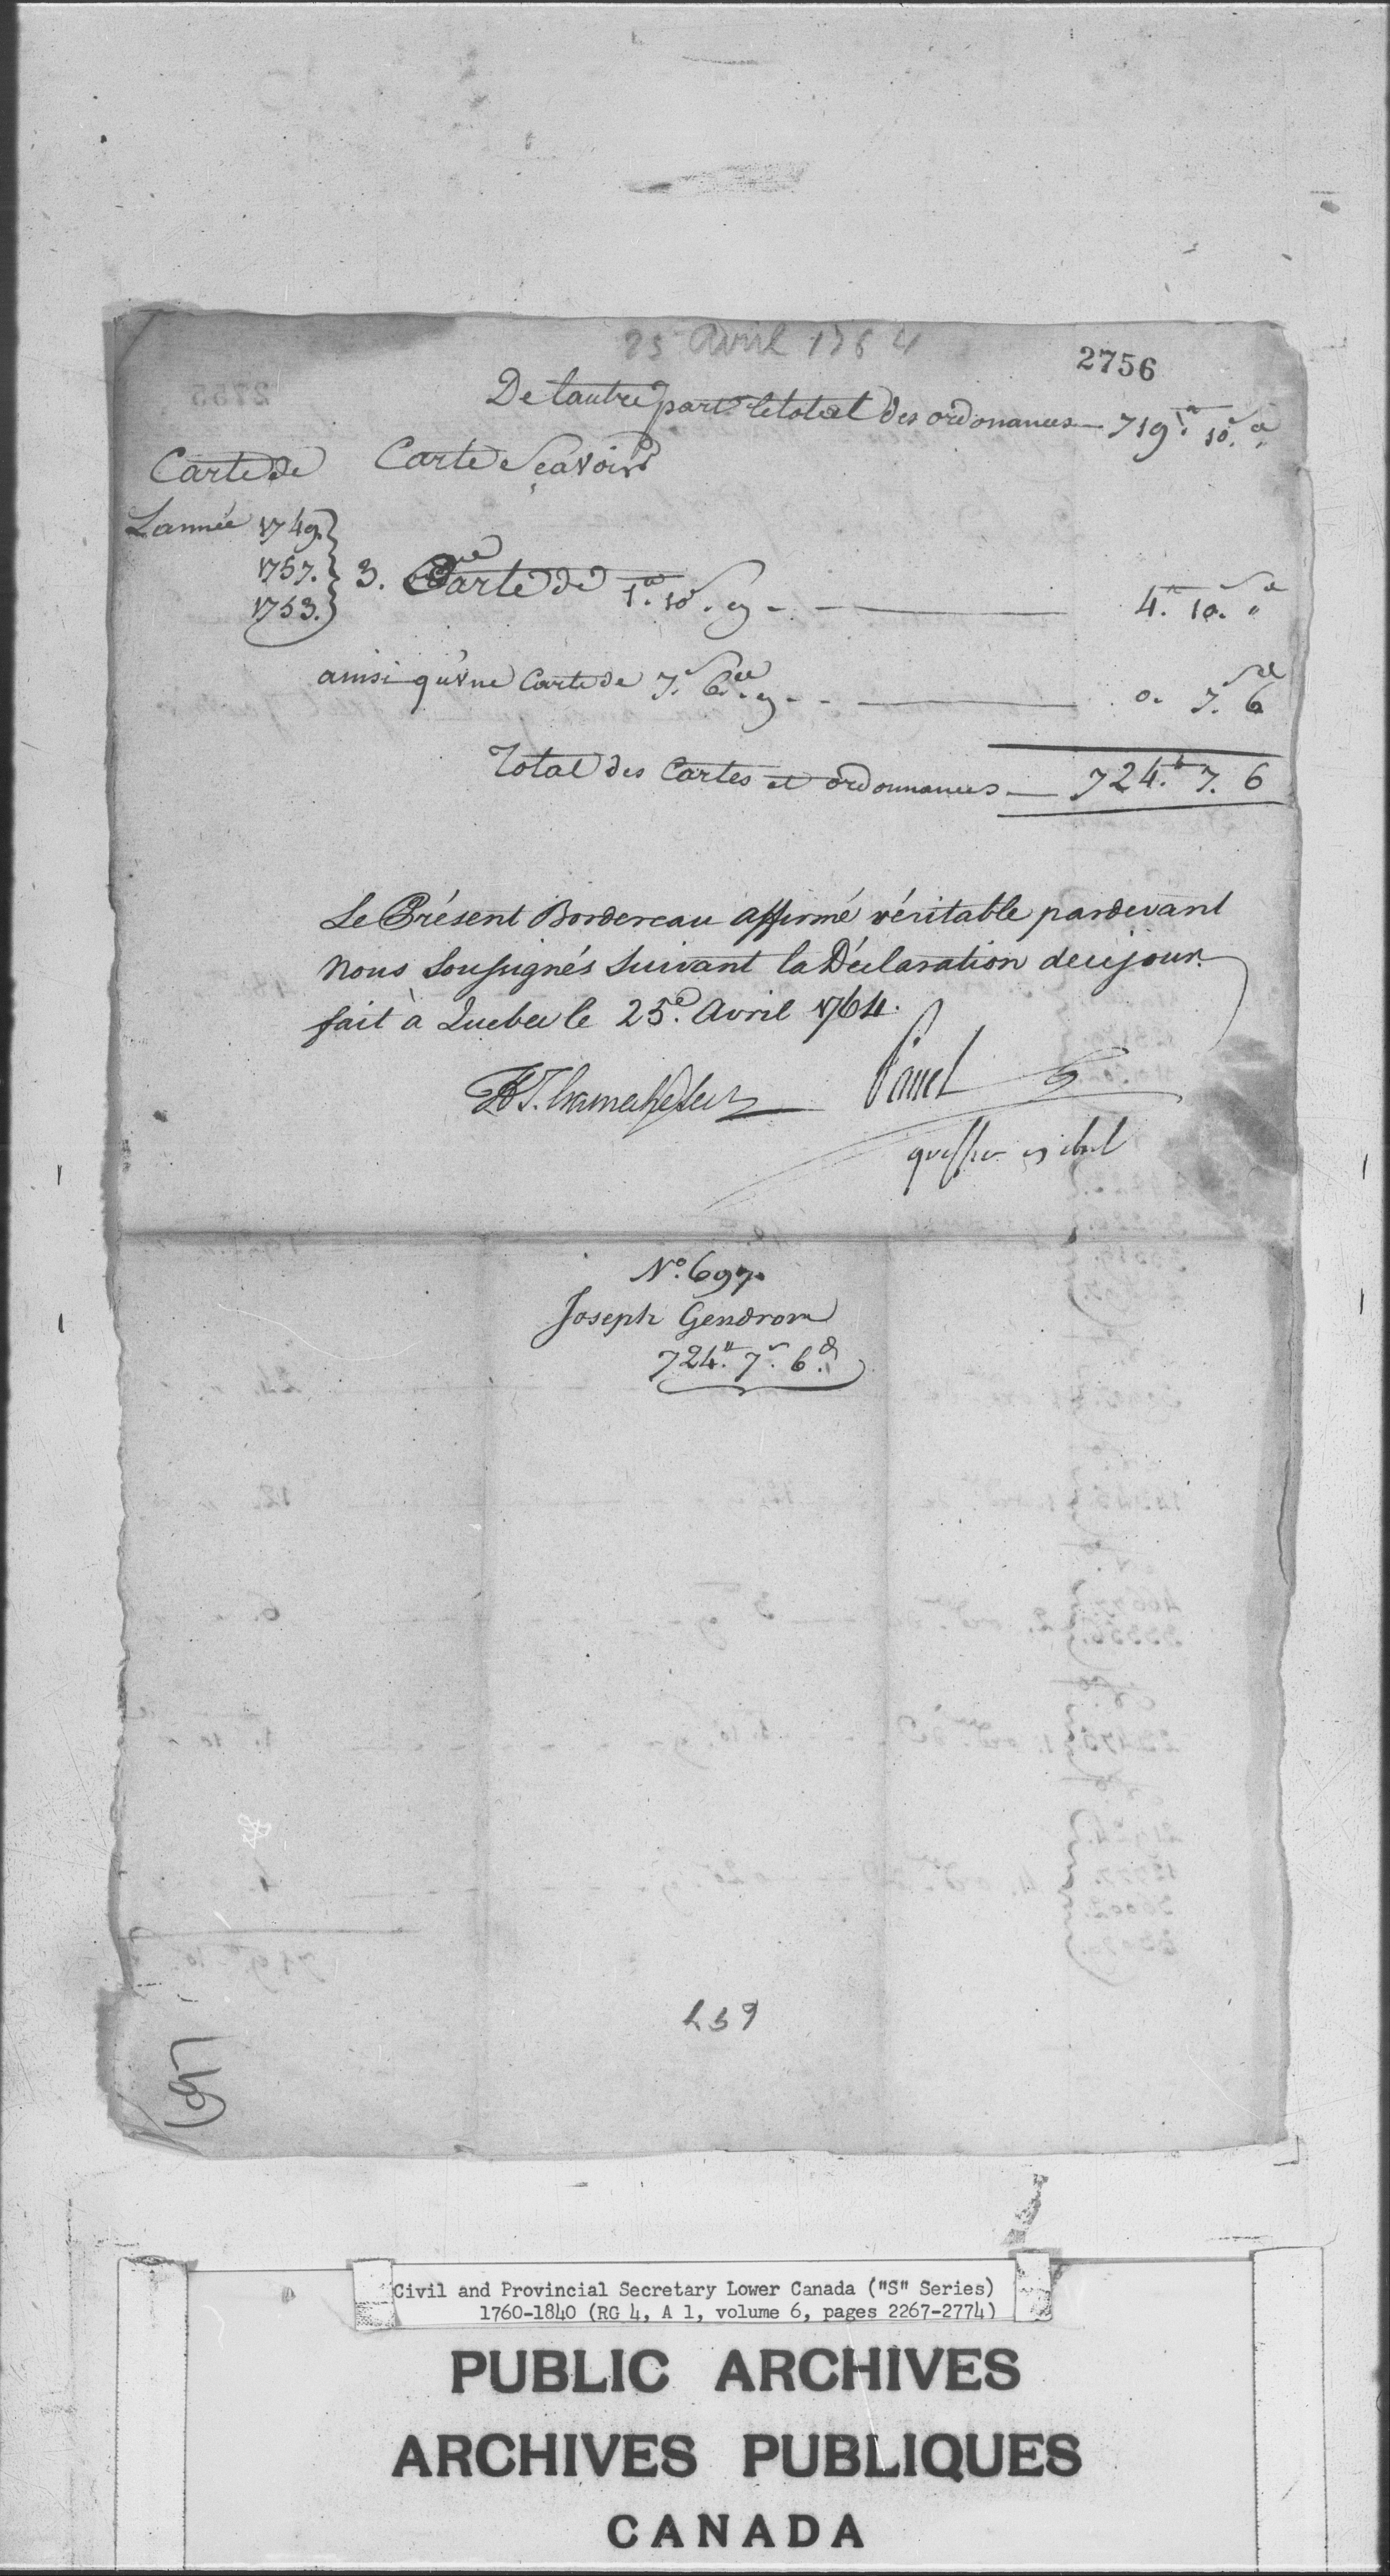 25 Avril 1764
2756
De lautre part le total des ordonances — 719.ᵗᵗ 10.ˢ „ᵈ
Carte de Carte Sçavoir
Lannée 1749.
1757. 3. Carte de 1.ᵗᵗ 10.ˢ cy - — 4.ᵗᵗ 10.ˢ „ᵈ
1753.
ainsi qu'une Carte de 7.ˢ 6.ᵈ cy - - — 0. 7.ˢ 6ᵈ
Total des Cartes et ordonnances — 724.ᵗᵗ 7. 6
Le Présent Bordereau affirmé véritable pardevant
Nous Soussignés Suivant la Déclaration de ce jour
fait à Quebec le 25.ᵉ Avril 1764.
Panet
N.º 697.
Joseph Gendron
724.ᵗᵗ 7.ˢ 6.ᵈ
697
Civil and Provincial Secretary Lower Canada ("S" Series)
1760-1840 (RG 4, A 1, volume 6, pages 2267-2774)
PUBLIC ARCHIVES
ARCHIVES PUBLIQUES
CANADA